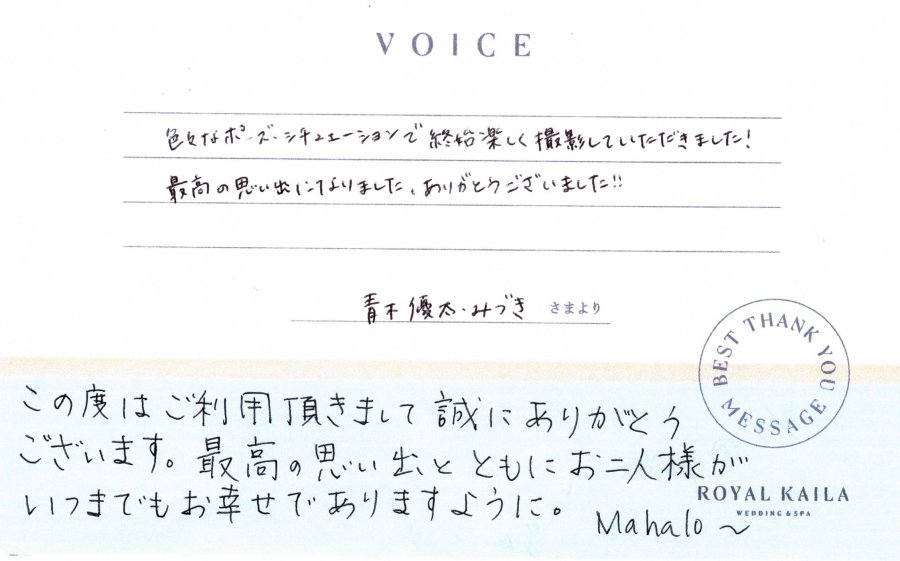 VOICE
色々なポーズ・シチュエーションで終始楽しく撮影していただきました!
最高の思い出になりました、ありがとうございました!!
青木優太・みづき さまより
BEST THANK YOU MESSAGE
この度はご利用頂きまして誠にありがとう
ございます。最高の思い出とともにお二人様が
いつまでもお幸せでありますように。
ROYAL KAILA
WEDDING & SPA
Mahalo～